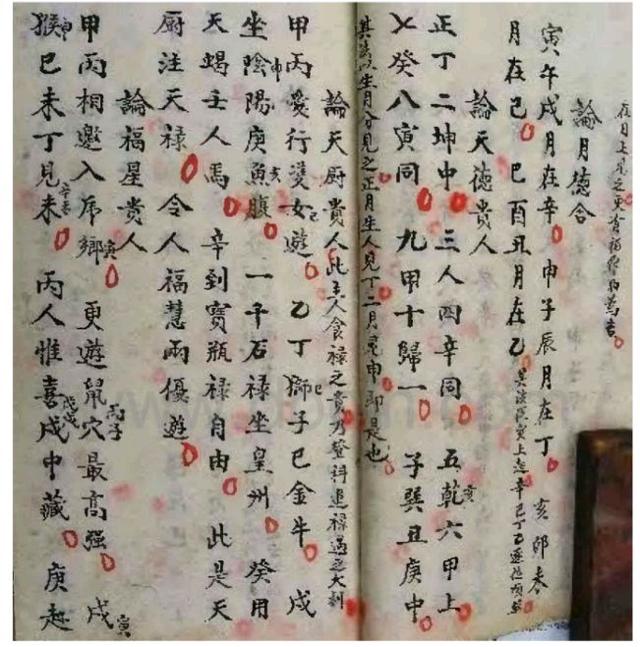 在月上見之更有福為吉
論月德合
寅午戌月在辛 申子辰月在丁 亥卯未
月在己 巳酉丑月在乙 其法從寅上起辛己丁乙逐位順
論天德貴人
正丁二坤中 三人四辛同 五乾亥六甲上
七癸八寅同 九甲十歸一 子巽丑庚中
其法以生月分見之正月生人見丁二月見申即是也
論天厨貴人此主人食祿之貴乃登科進祿遇之大利
甲丙愛行雙女巳遊 乙丁獅子己金牛 戊
坐陰陽申庚魚亥腹 一千石祿坐皇州 癸用
天蝎壬人馬 辛到寶瓶祿自由 此是天
厨注天祿 令人福慧兩優遊
論福星貴人
甲丙相邀入虎鄉寅 更遊鼠穴丙子最高強 戊寅
猴申己未丁見未 丙人惟喜戌中藏 庚趂